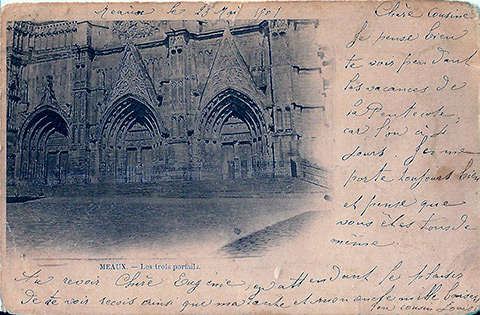 Meaux le 23 Mai 1901
Chère cousine
Je pense bien
te voir pendant
les vacances de
la Pentecote,
car l'on a
jours. Je me
porte toujours bien
et pense que
vous êtes tous de
même.
MEAUX. — Les trois portails.
Au revoir Chère Eugénie, en attendant le plaisir
de te voir reçois ainsi que ma tante et mon oncle mille baisers
ton cousin Louis